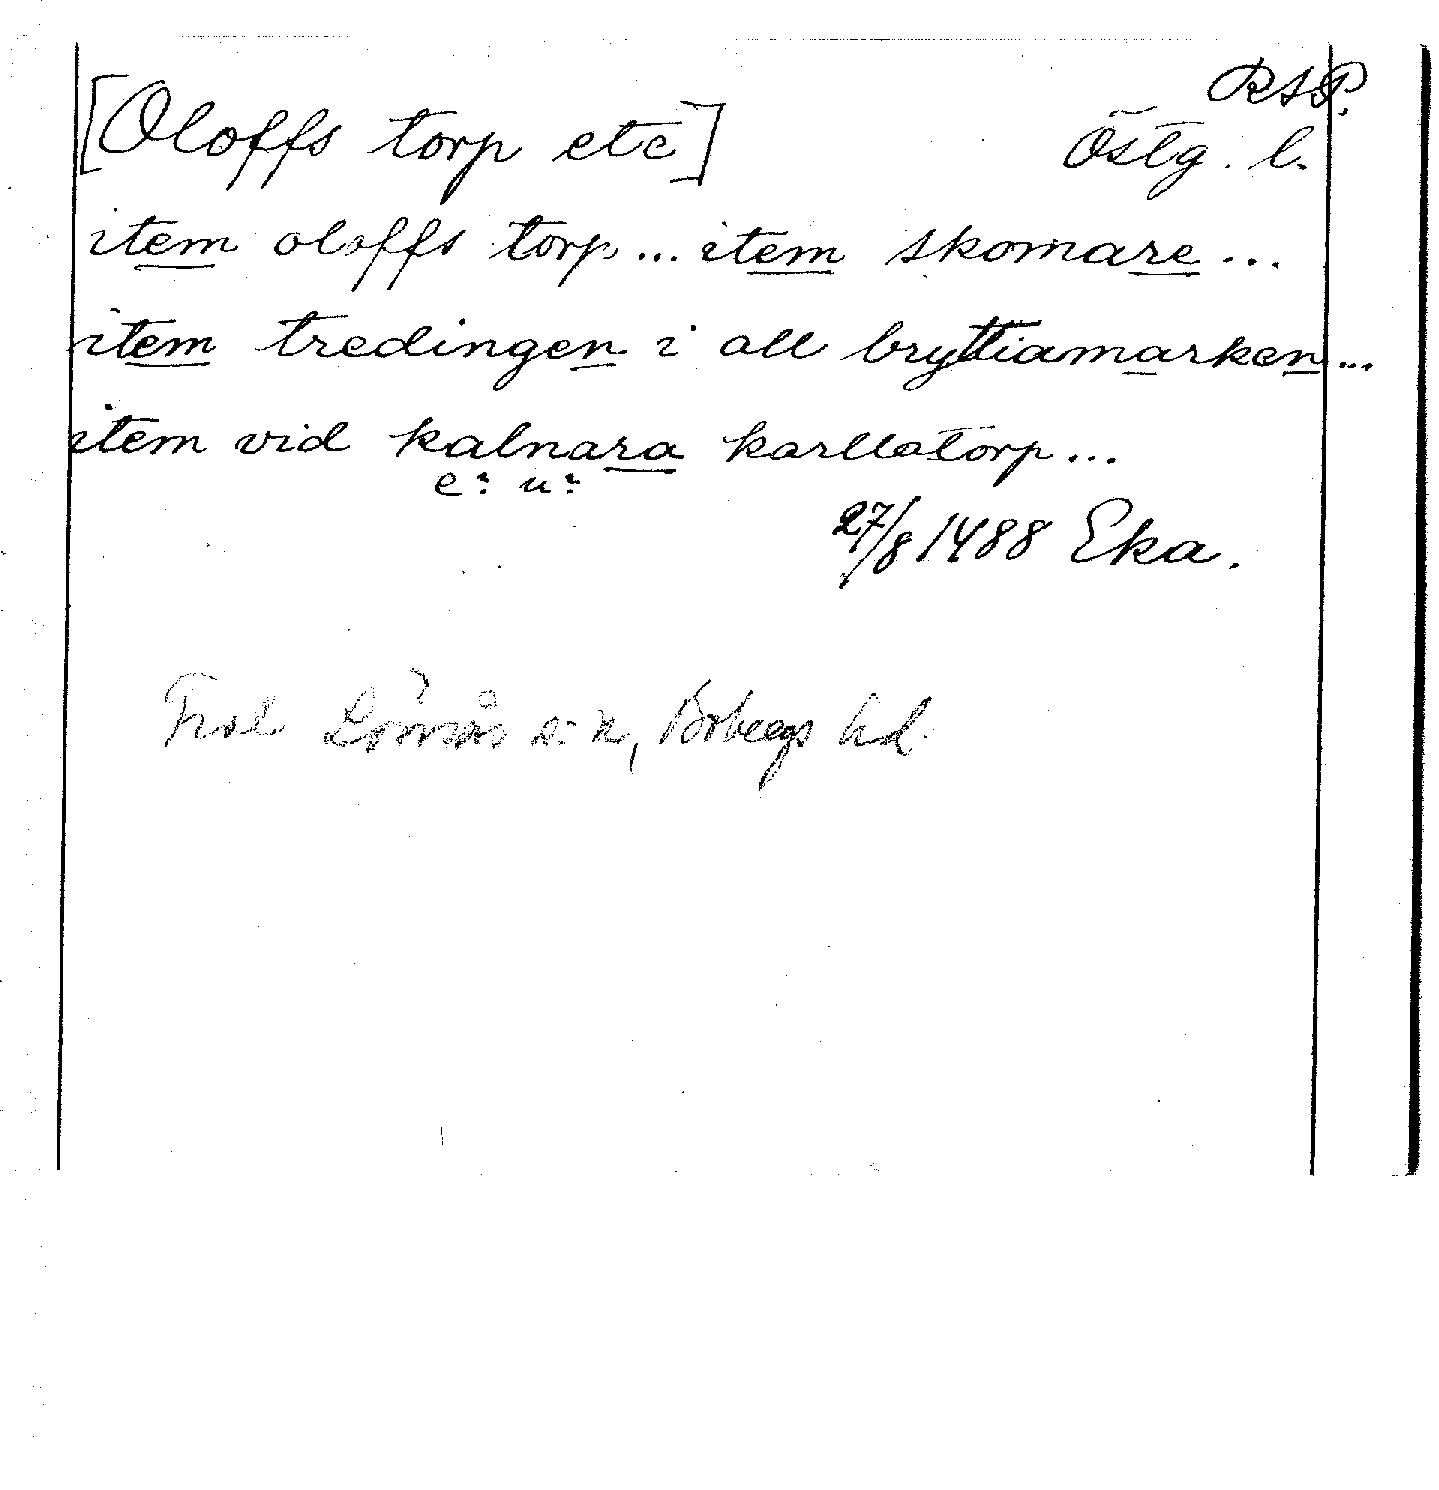 RAP.
[Oloffs torp etc]
Östg. l.
item oloffs torp... item skomare...
item tredingen i all bryttiamarken...
item vid kalnara karllatorp...
e? u?
27/8 1488 Eka.
Lönsås s:n, Bobergs hd.